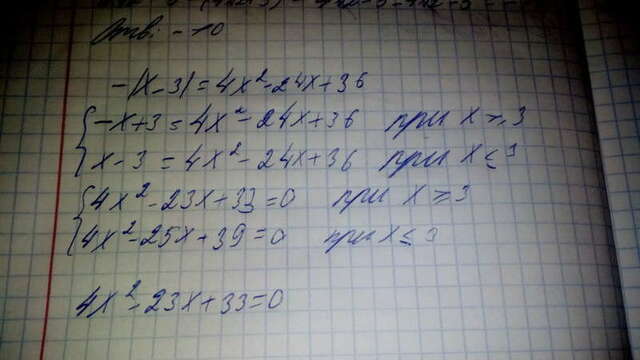 Отв: -10
-|x-3|=4x²-24x+36
{-x+3=4x²-24x+36 при x≥3
x-3=4x²-24x+36 при x≤3
{4x²-23x+33=0 при x≥3
4x²-25x+39=0 при x≤3
4x²-23x+33=0